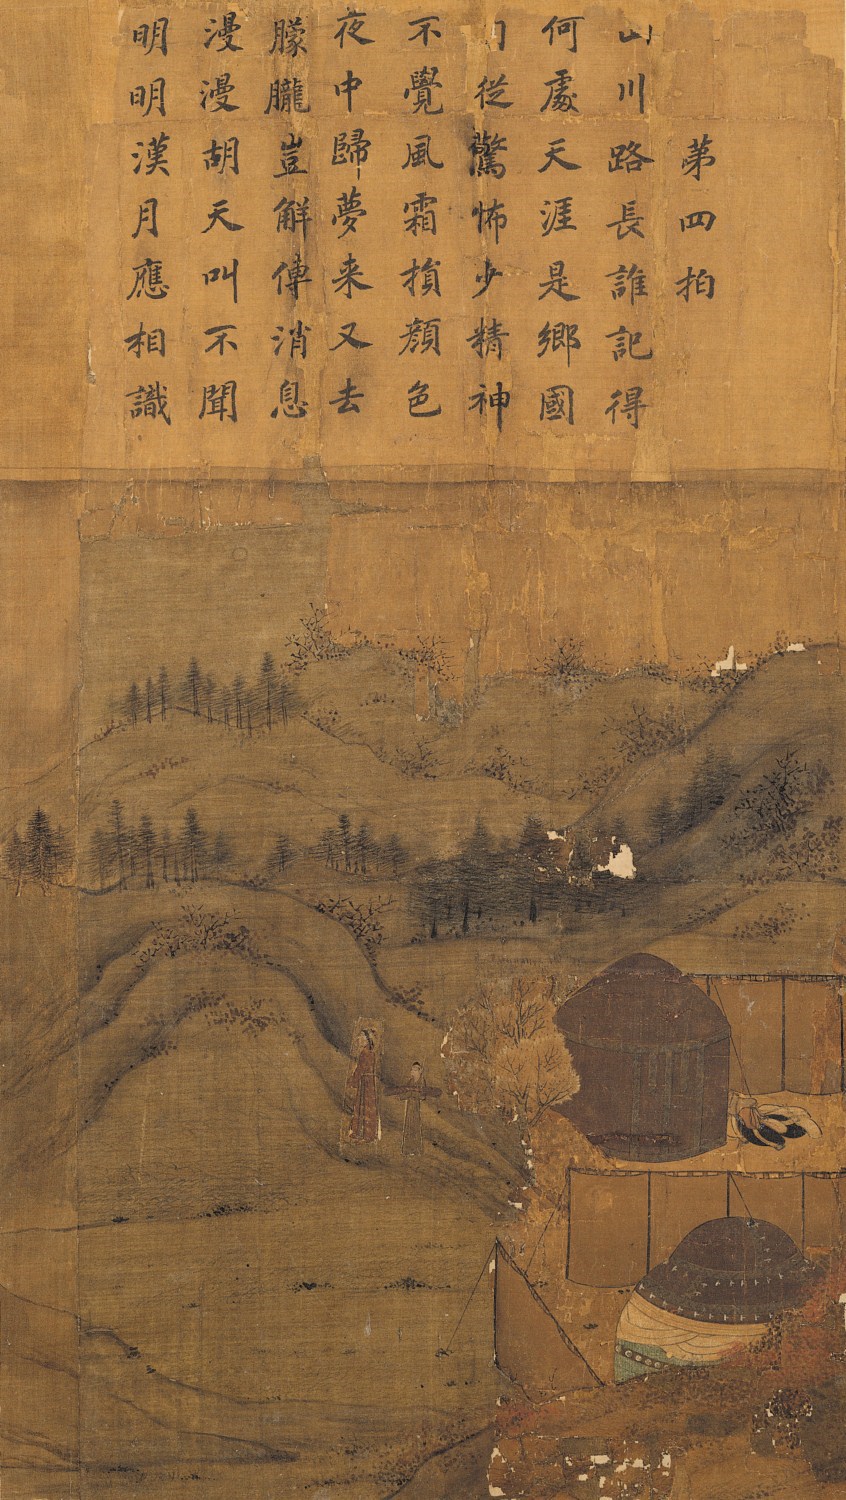 第四拍
山川路長誰記得
何處天涯是鄉國
從驚怖少精神
不覺風霜損顏色
夜中歸夢来又去
朦朧豈解傳消息
漫漫胡天叫不聞
明明漢月應相識